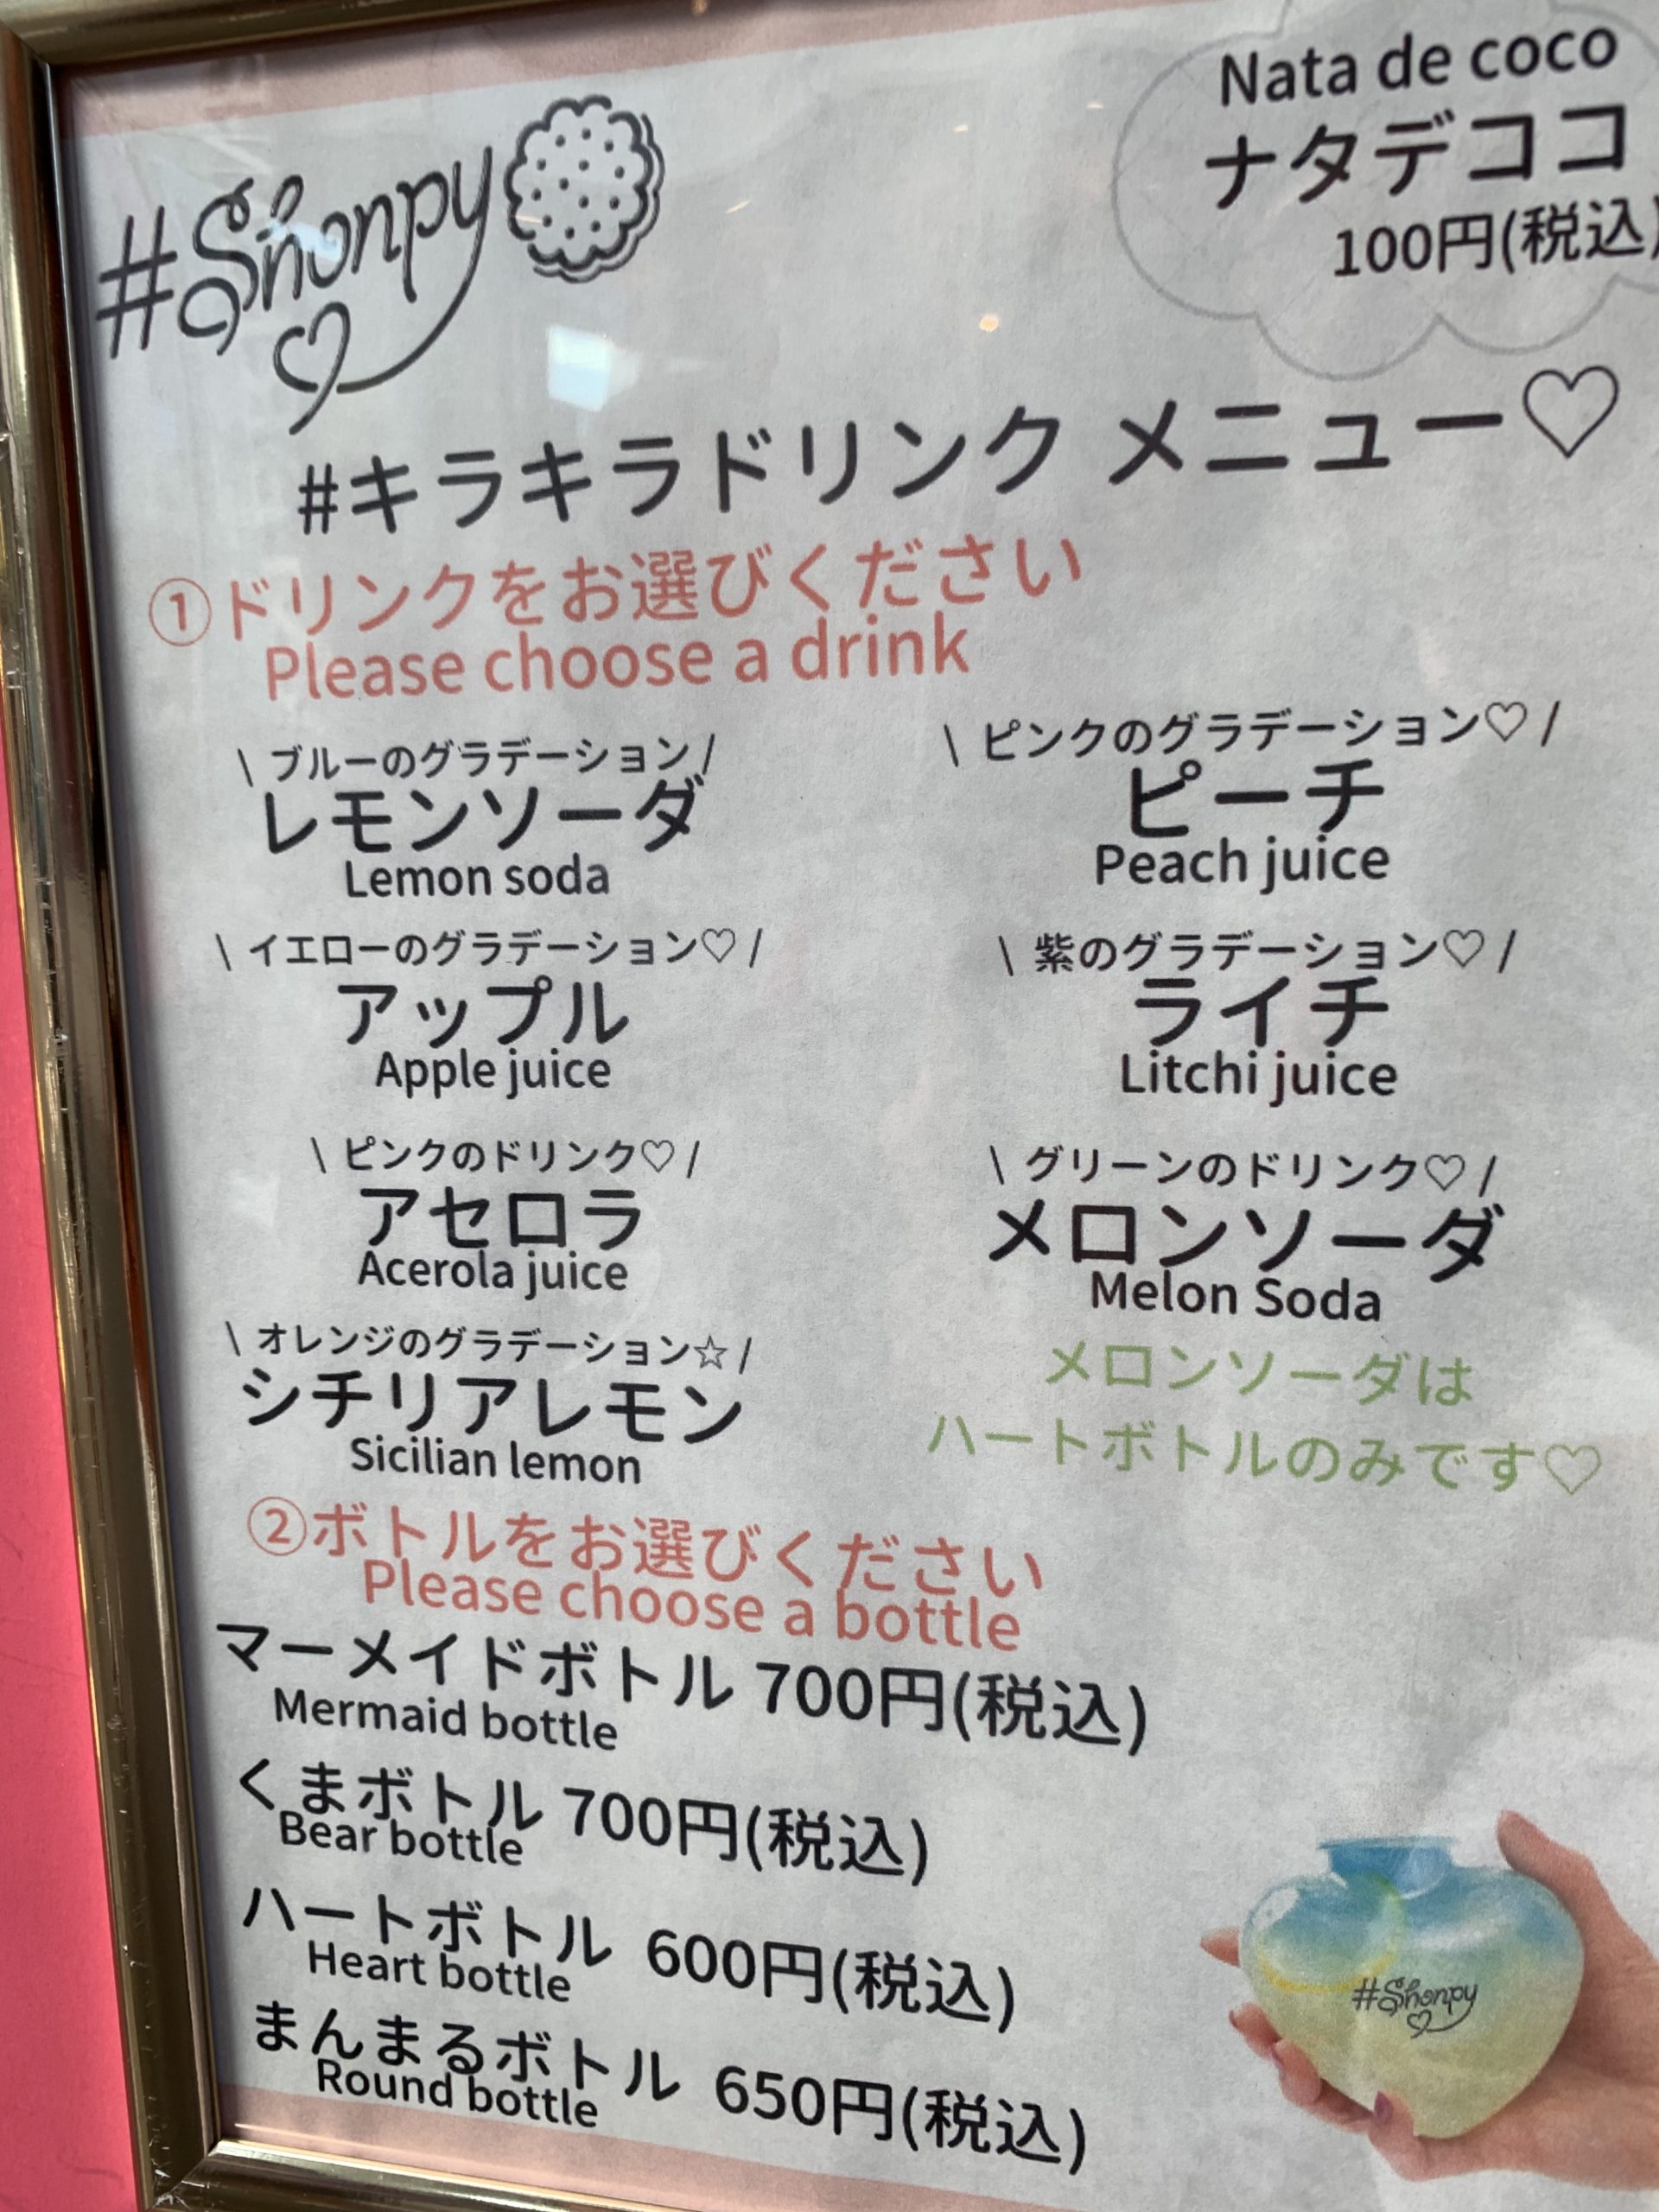 #Shonpy
Nata de coco
ナタデココ
100円(税込)
#キラキラドリンク メニュー♡
①ドリンクをお選びください
Please choose a drink
\ ブルーのグラデーション /
レモンソーダ
Lemon soda
\ ピンクのグラデーション♡ /
ピーチ
Peach juice
\ イエローのグラデーション♡ /
アップル
Apple juice
\ 紫のグラデーション♡ /
ライチ
Litchi juice
\ ピンクのドリンク♡ /
アセロラ
Acerola juice
\ グリーンのドリンク♡ /
メロンソーダ
Melon Soda
メロンソーダは
ハートボトルのみです♡
\ オレンジのグラデーション☆ /
シチリアレモン
Sicilian lemon
②ボトルをお選びください
Please choose a bottle
マーメイドボトル 700円(税込)
Mermaid bottle
くまボトル 700円(税込)
Bear bottle
ハートボトル 600円(税込)
Heart bottle
まんまるボトル 650円(税込)
Round bottle
#Shonpy